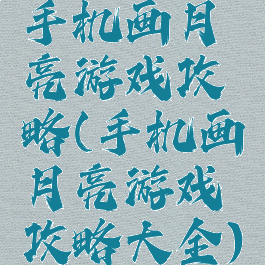 手机画月
亮游戏攻
略(手机画
月亮游戏
攻略大全)